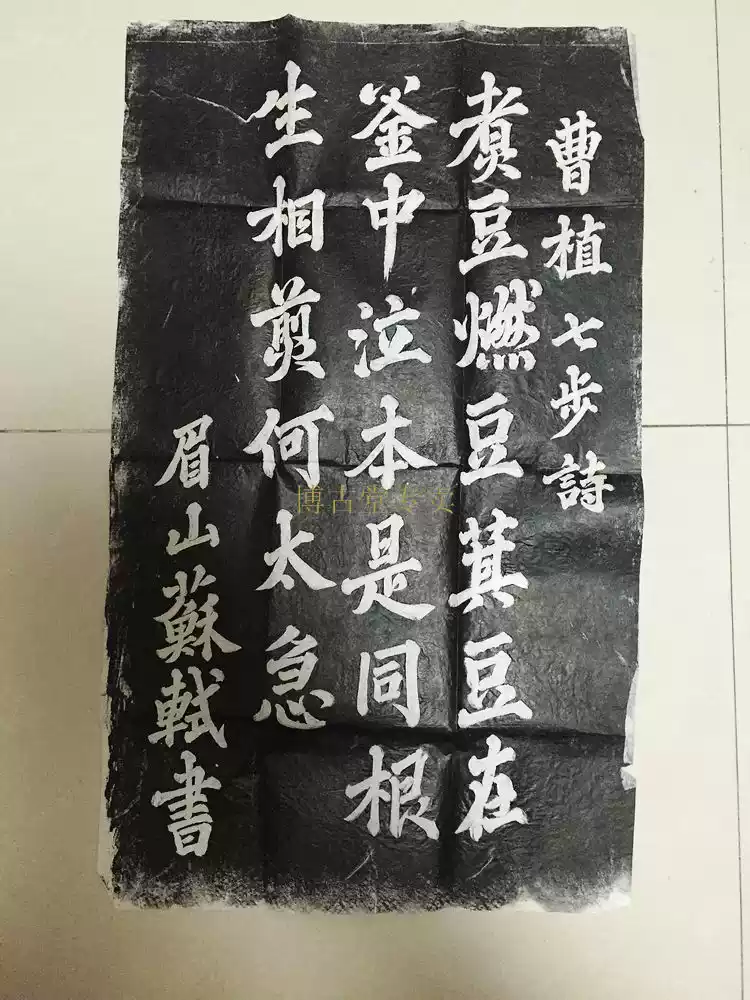 曹植七步詩
煮豆燃豆萁豆在
釜中泣本是同根
生相煎何太急
眉山蘇軾書
博古堂专文